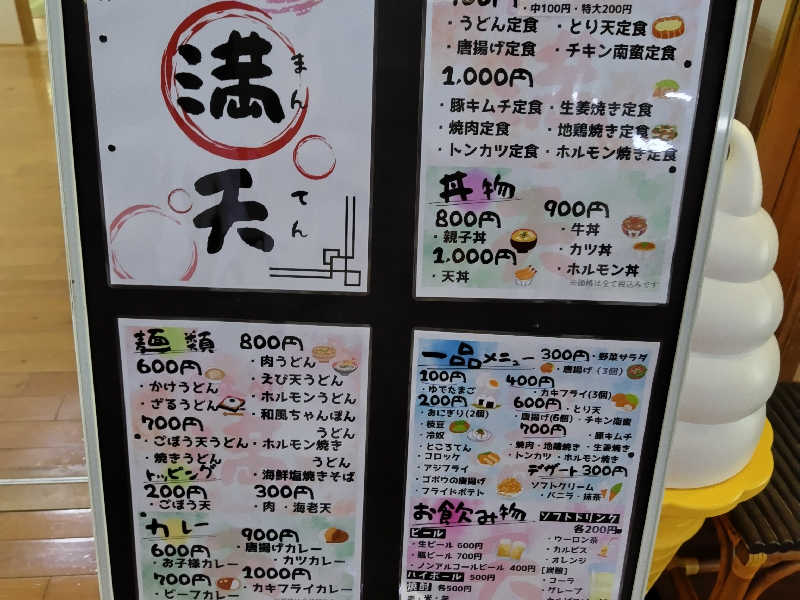 満天
まんてん
・中100円・特大200円
・うどん定食 ・とり天定食
・唐揚げ定食 ・チキン南蛮定食
1,000円
・豚キムチ定食・生姜焼き定食
・焼肉定食 ・地鶏焼き定食
・トンカツ定食・ホルモン焼き定食
丼物
800円
・親子丼
1,000円
・天丼
900円
・牛丼
・カツ丼
・ホルモン丼
※価格は全て税込みです
麺類
600円
・かけうどん
・ざるうどん
700円
・ごぼう天うどん
・焼きうどん
800円
・肉うどん
・えび天うどん
・ホルモンうどん
・和風ちゃんぽん
うどん
・ホルモン焼き
うどん
・海鮮塩焼きそば
トッピング
200円
・ごぼう天
300円
・肉・海老天
カレー
600円
・お子様カレー
700円
・ビーフカレー
900円
・唐揚げカレー
・カツカレー
1,000円
・カキフライカレー
一品メニュー
100円
・ゆでたまご
200円
・おにぎり(2個)
・枝豆
・冷奴
・ところてん
・コロッケ
・アジフライ
・ゴボウの唐揚げ
・フライドポテト
300円・野菜サラダ
・唐揚げ(3個)
400円
・カキフライ(3個)
600円・とり天
・唐揚げ(6個)・チキン南蛮
700円
・豚キムチ
・焼肉・地鶏焼き・生姜焼き
・トンカツ・ホルモン焼き
デザート 300円
ソフトクリーム
・バニラ・抹茶
お飲み物
ビール
・生ビール 600円
・瓶ビール 700円
・ノンアルコールビール 400円
ハイボール 500円
焼酎 各500円
麦・米・芋
ソフトドリンク
各200円
・ウーロン茶
・カルピス
・オレンジ
[炭酸]
・コーラ
・グレープ